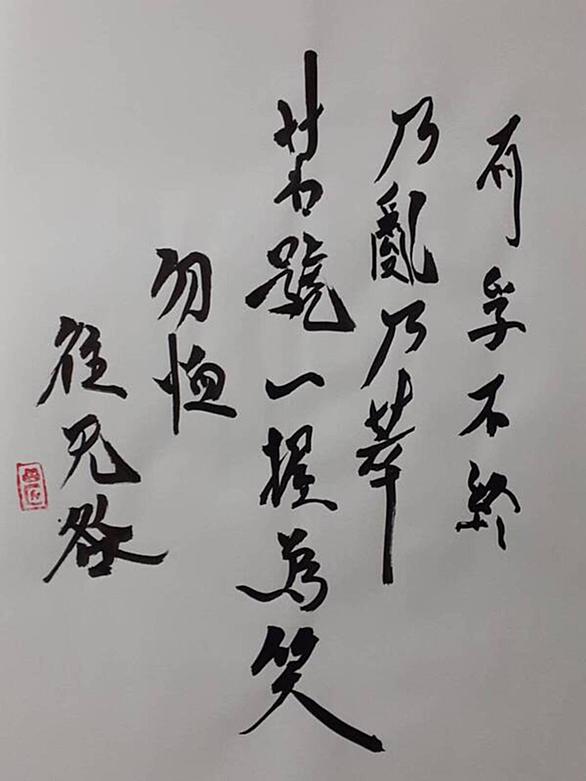 有孚不終
乃亂乃萃
若號一握為笑
勿恤
往无咎